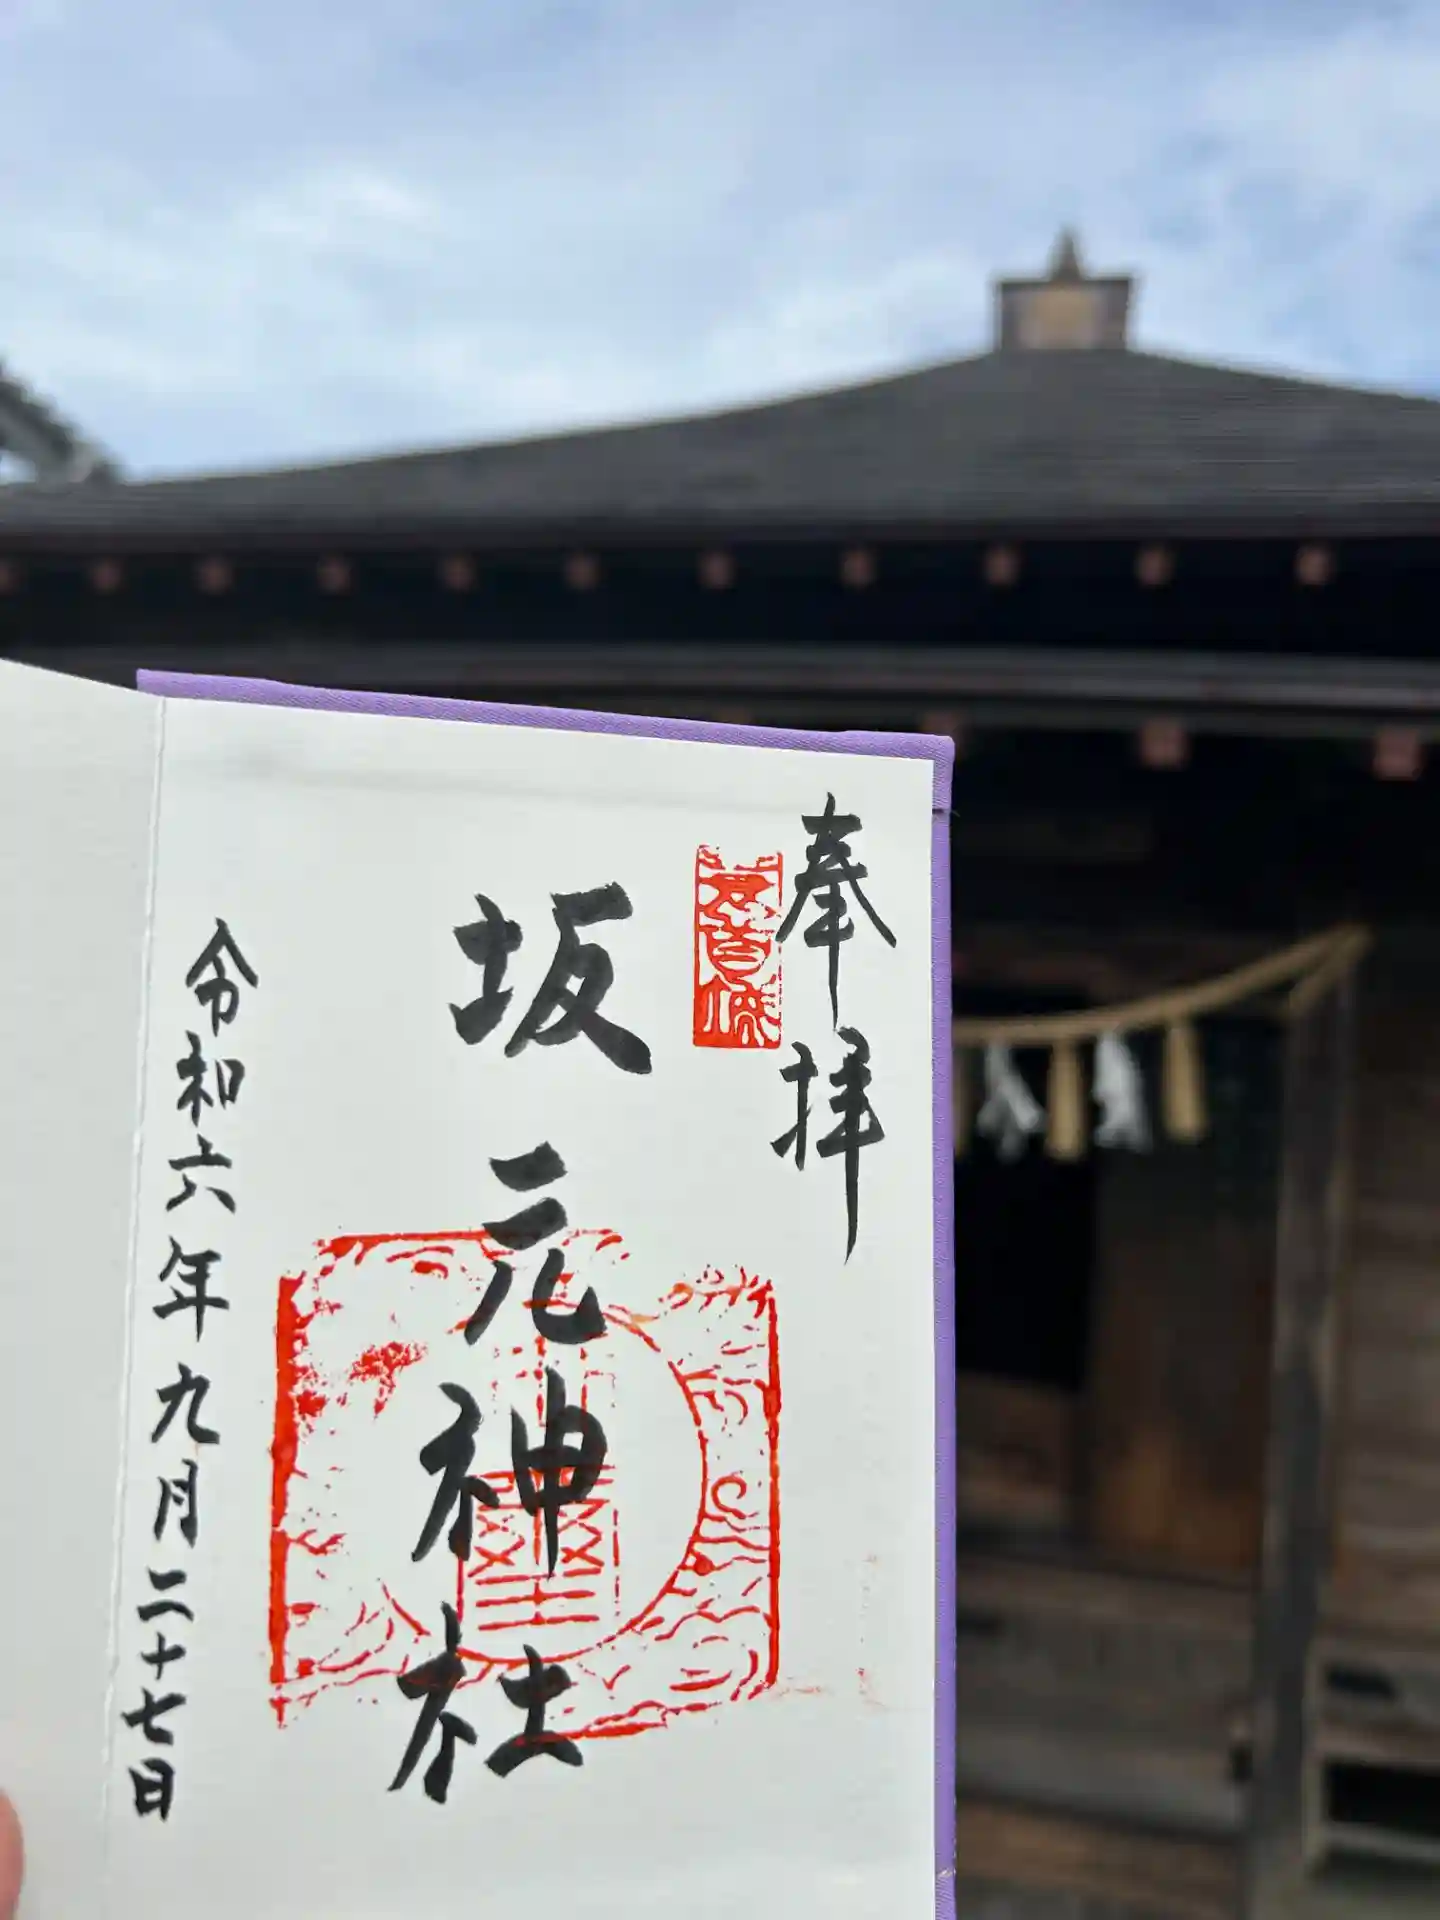 奉拝
坂元神社
令和六年九月二十七日